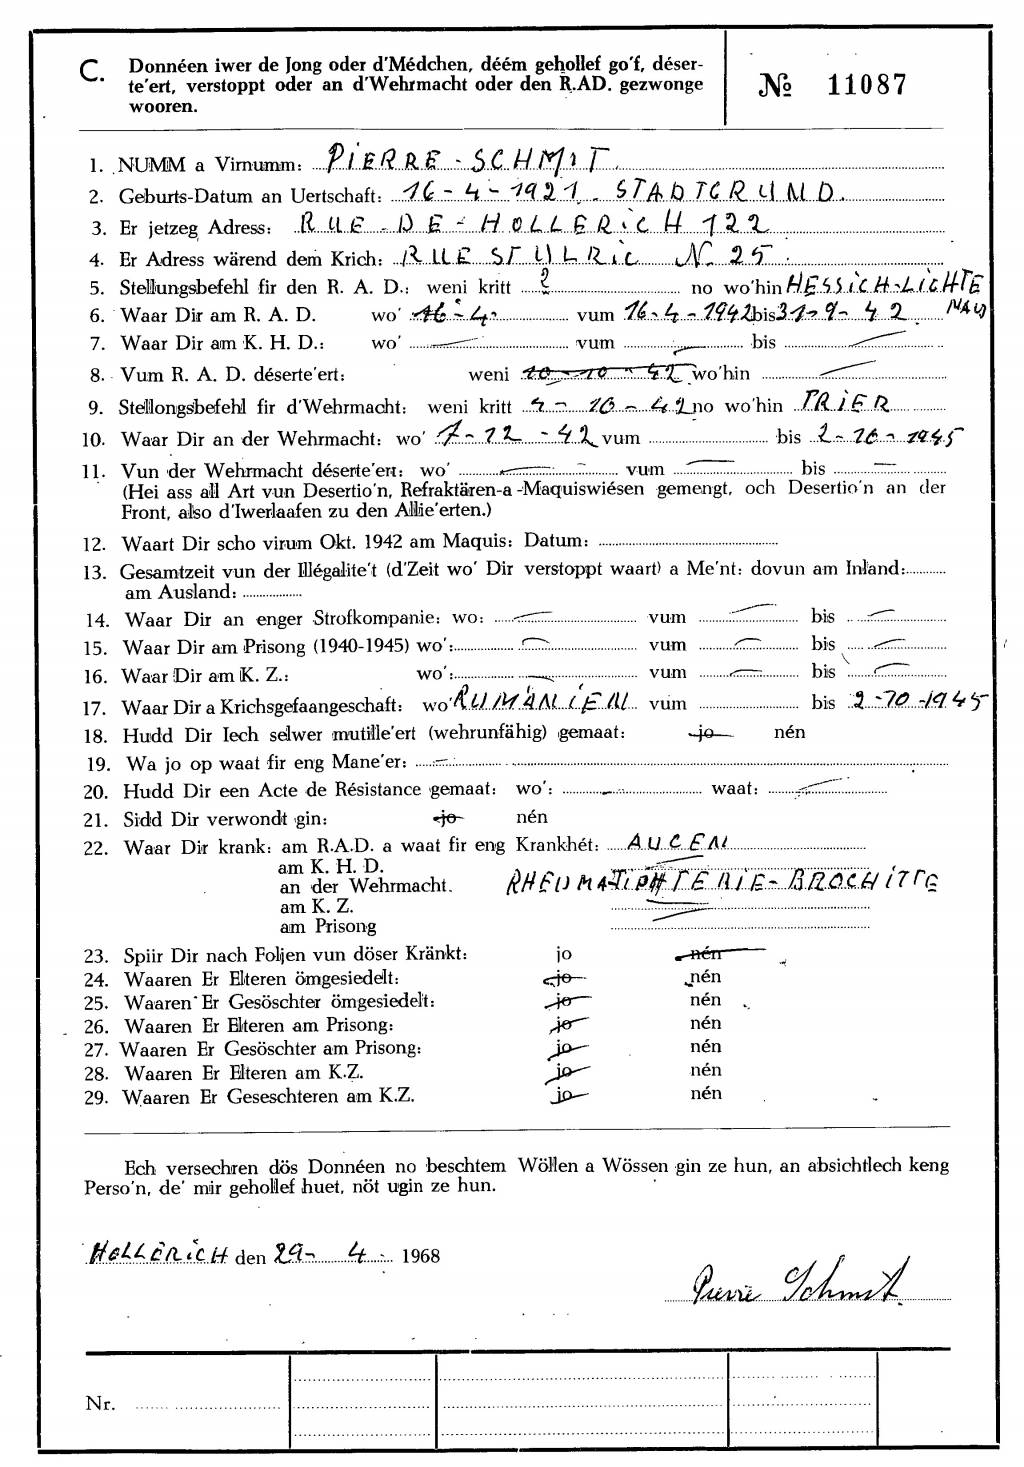 C. Donnéen iwer de Jong oder d'Médchen, déém gehollef go'f, déser-
te'ert, verstoppt oder an d'Wehrmacht oder den R.AD. gezwonge
wooren.
№ 11087
1. NUMM a Virnumm: PIERRE - SCHMIT
2. Geburts-Datum an Uertschaft: 16-4-1921. STADTGRUND.
3. Er jetzeg Adress: RUE-DE-HOLLERICH 122
4. Er Adress wärend dem Krich: RUE ST ULRIC N. 25
5. Stellungsbefehl fir den R. A. D.: weni kritt ? no wo'hin HESSICH-LICHTE
NAU
6. Waar Dir am R. A. D. wo' 16-4- vum 16-4-1942 bis 31-9-42
7. Waar Dir am K. H. D.: wo' vum bis
8. Vum R. A. D. déserte'ert: weni 10-10-42 wo'hin
9. Stellongsbefehl fir d'Wehrmacht: weni kritt 7-10-42 no wo'hin TRIER
10. Waar Dir an der Wehrmacht: wo' 7-12-42 vum bis 2-10-1945
11. Vun der Wehrmacht déserte'ert: wo' vum bis
(Hei ass all Art vun Desertio'n, Refraktären-a-Maquiswiésen gemengt, och Desertio'n an der
Front, also d'Iwerlaafen zu den Allie'erten.)
12. Waart Dir scho virum Okt. 1942 am Maquis: Datum:
13. Gesamtzeit vun der Illégalite't (d'Zeit wo' Dir verstoppt waart) a Me'nt: dovun am Inland:
am Ausland:
14. Waar Dir an enger Strofkompanie: wo: vum bis
15. Waar Dir am Prisong (1940-1945) wo': vum bis
16. Waar Dir am K. Z.: wo': vum bis
17. Waar Dir a Krichsgefaangeschaft: wo' RUMÄNIEN vum bis 2-10-1945
18. Hudd Dir Iech selwer mutille'ert (wehrunfähig) gemaat: jo nén
19. Wa jo op waat fir eng Mane'er:
20. Hudd Dir een Acte de Résistance gemaat: wo': waat:
21. Sidd Dir verwondt gin: jo nén
22. Waar Dir krank: am R.A.D. a waat fir eng Krankhét: AUGEN
am K. H. D.
an der Wehrmacht. RHEUMATI DIPHTERIE-BROCHITTE
am K. Z.
am Prisong
23. Spiir Dir nach Foljen vun döser Kränkt: jo nén
24. Waaren Er Elteren ömgesiedelt: jo nén
25. Waaren Er Gesöschter ömgesiedelt: jo nén
26. Waaren Er Elteren am Prisong: jo nén
27. Waaren Er Gesöschter am Prisong: jo nén
28. Waaren Er Elteren am K.Z. jo nén
29. Waaren Er Geseschteren am K.Z. jo nén
Ech versechren dös Donnéen no beschtem Wöllen a Wössen gin ze hun, an absichtlech keng
Perso'n, de' mir gehollef huet, nöt ugin ze hun.
HOLLERICH den 29- 4- 1968
Pierre Schmit
Nr.